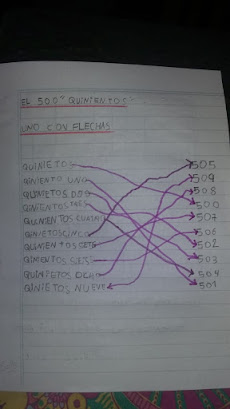 EL 500" QUINIENTOS
UNO CON FLECHAS
QUINIETOS 505
QUINIENTO UNO 509
QUINIETOS DOS 508
QUINIENTOS TRES 500
QUINIENTOS CUATRO 507
QUINIETOS CINCO 506
QUINIENTOS SEIS 502
QUINIENTOS SIETE 503
QUINIETOS OCHO 504
QUINIETOS NUEVE 501